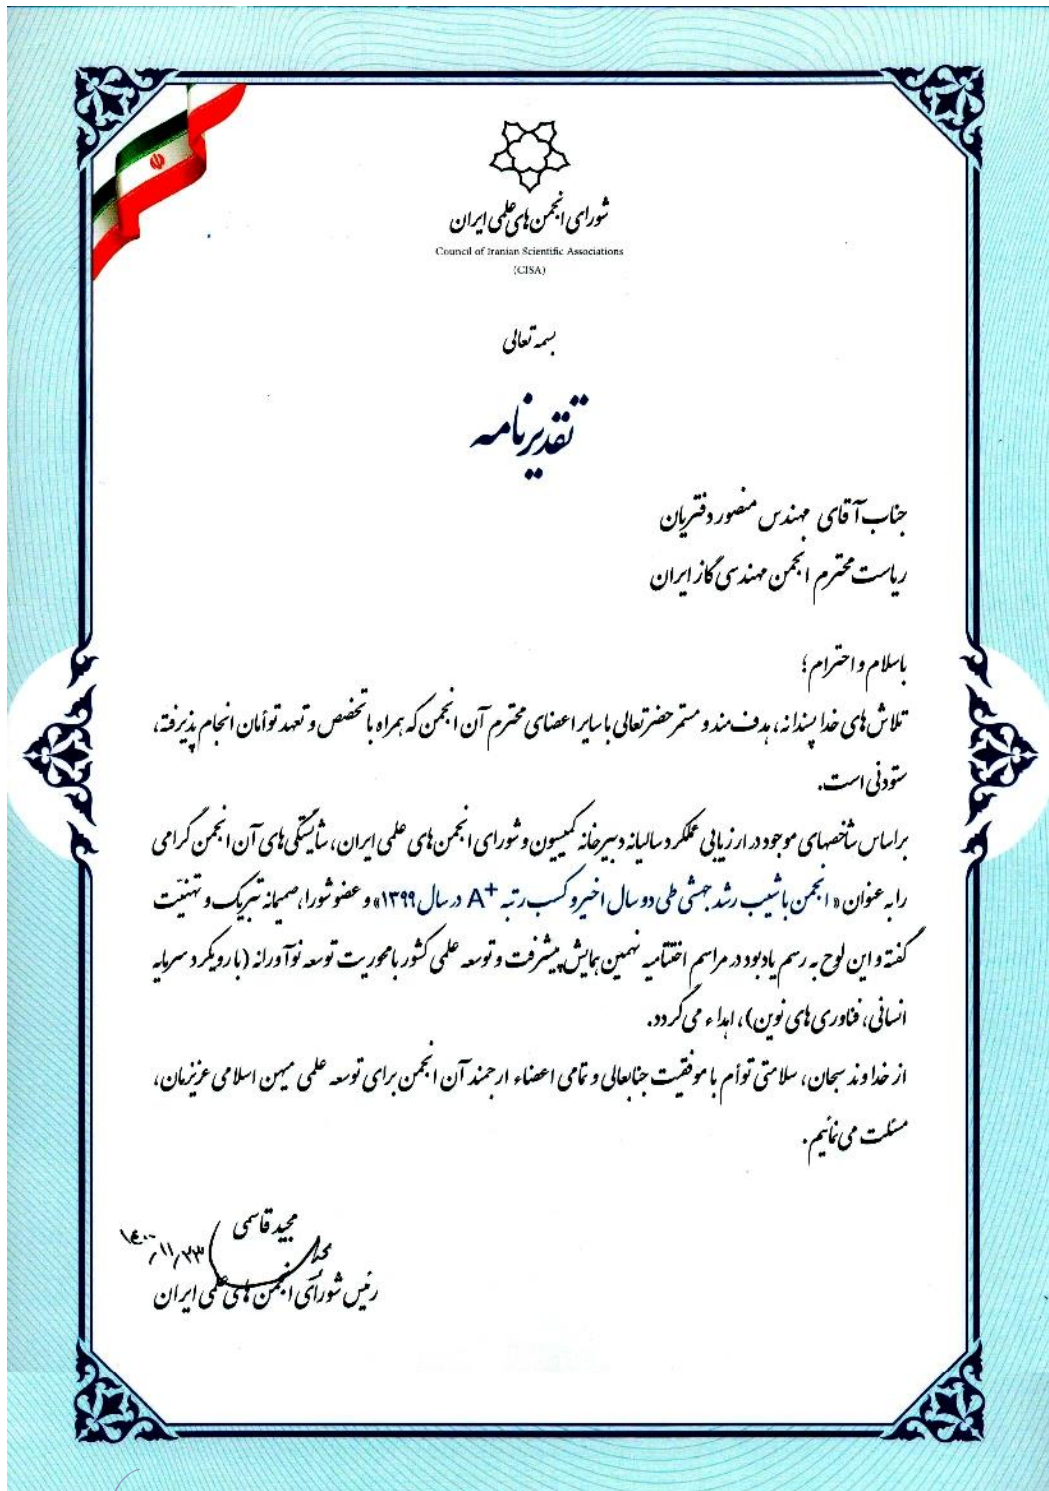 شورای انجمن‌های علمی ایران
Council of Iranian Scientific Associations
(CISA)
بسمه تعالی
تقدیرنامه
جناب آقای مهندس منصور دفتریان
ریاست محترم انجمن مهندسی گاز ایران
باسلام و احترام؛
تلاش‌های خداپسندانه، هدف‌مند و مستمر حضرتعالی با سایر اعضای محترم آن انجمن که همراه با تخصص و تعهد توأمان انجام پذیرفته،
ستودنی است.
براساس شاخصهای موجود در ارزیابی عملکرد سالیانه دبیرخانه کمیسیون و شورای انجمن‌های علمی ایران، شایستگی‌های آن انجمن گرامی
را به عنوان «انجمن با شیب رشد جهشی طی دو سال اخیر و کسب رتبه A+ در سال ۱۳۹۹» و عضو شورا، صمیمانه تبریک و تهنیّت
گفته و این لوح به رسم یادبود در مراسم اختتامیه نهمین همایش پیشرفت و توسعه علمی کشور با محوریت توسعه نوآورانه (با رویکرد سرمایه
انسانی، فناوری‌های نوین)، اهداء می‌گردد.
از خداوند سبحان، سلامتی توأم با موفقیت جنابعالی و تمامی اعضاء ارجمند آن انجمن برای توسعه علمی میهن اسلامی عزیزمان،
مسئلت می‌نمائیم.
مجید قاسمی
۱۴۰۰/۱۱/۲۳
رئیس شورای انجمن‌های علمی ایران